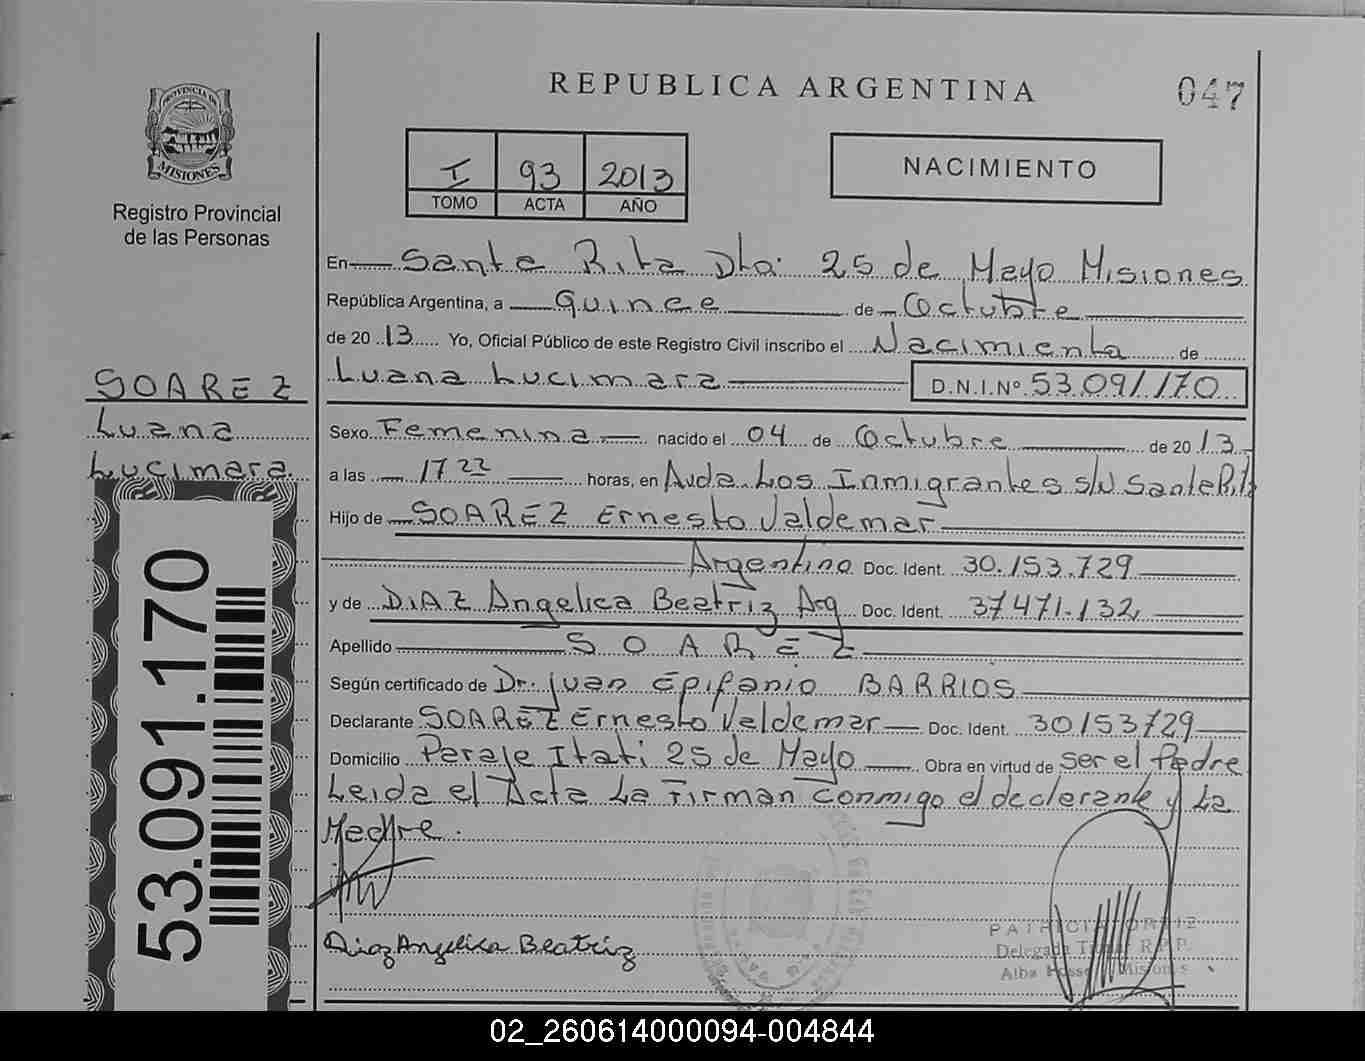 REPUBLICA ARGENTINA
047
PROVINCIA DE
MISIONES
Registro Provincial
de las Personas
I 93 2013
TOMO ACTA AÑO
NACIMIENTO
En Santa Rita Dto. 25 de Mayo Misiones
República Argentina, a Quince de Octubre
de 20 13 Yo, Oficial Público de este Registro Civil inscribo el Nacimiento de
Luana Lucimara D.N.I.Nº 53.091.170
SOAREZ
Luana
Lucimara
53.091.170
Sexo Femenina nacido el 04 de Octubre de 20 13
a las 17 22 horas, en Avda. Los Inmigrantes s/N Santa Rita
Hijo de SOAREZ Ernesto Valdemar
Argentino Doc. Ident. 30.153.729
y de DIAZ Angelica Beatriz Arg Doc. Ident. 37471.132
Apellido SOAREZ
Según certificado de Dr. Juan Epifanio BARRIOS
Declarante SOAREZ Ernesto Valdemar Doc. Ident. 30153729
Domicilio Peraje Itati 25 de Mayo Obra en virtud de ser el Padre
Leida el Acta La Firman conmigo el declarante y La
Madre.
Diaz Angelica Beatriz
Delegada R.P.P.
Alba Misiones
02_260614000094-004844